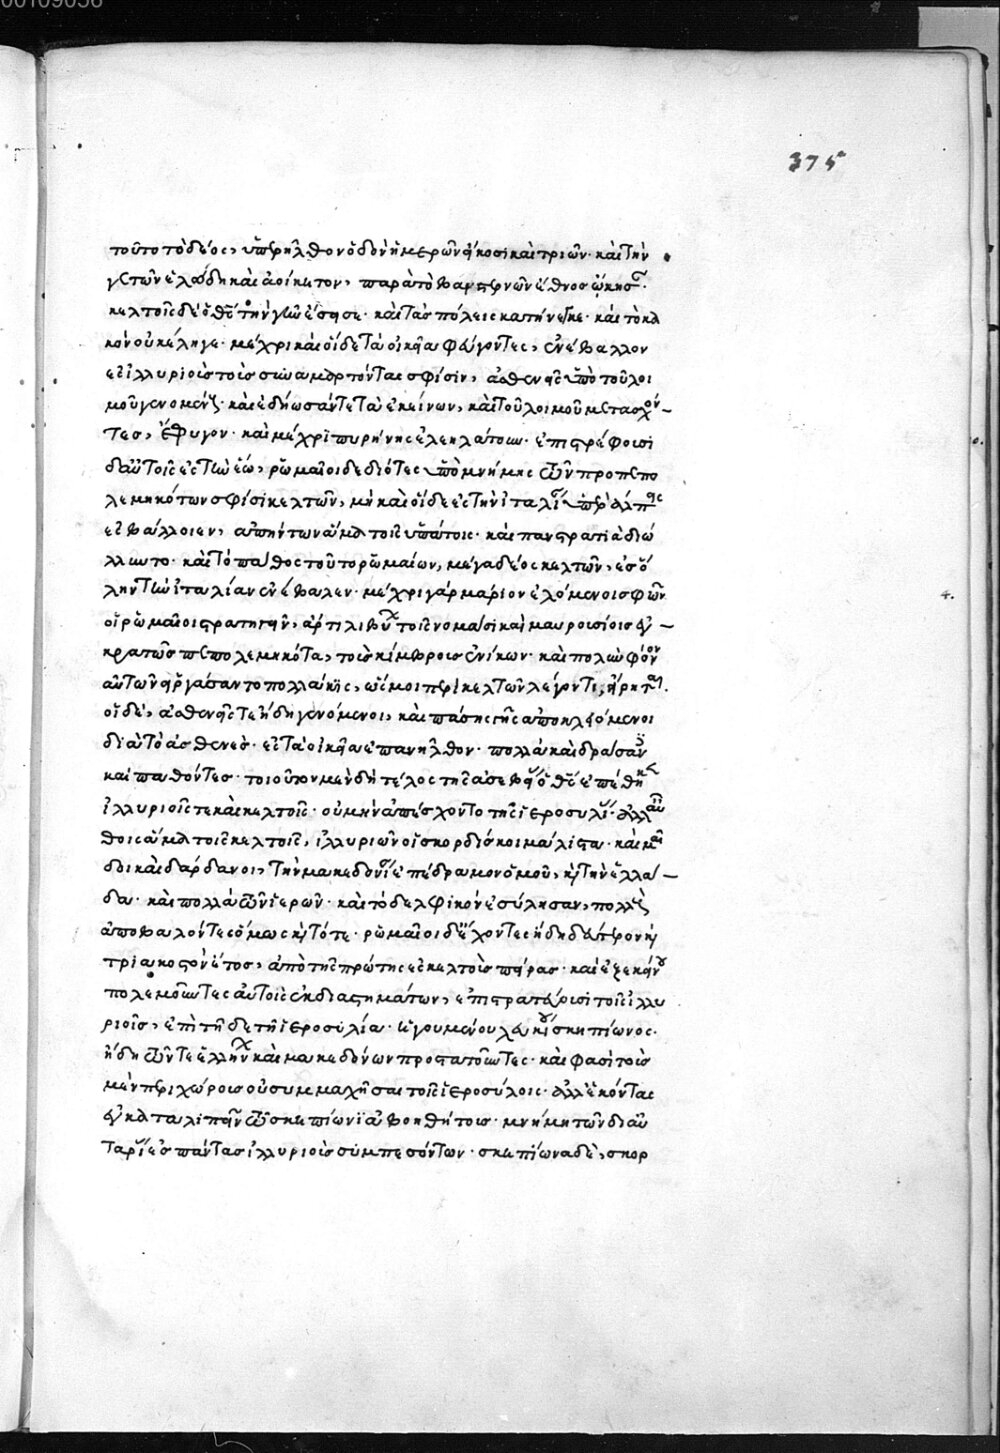 00109056
375
τοῦτο τὸ δέος, ὑπερῆλθον ὁδὸν ἡμερῶν εἴκοσι καὶ τριῶν· καὶ τὴν
γετῶν ἑλώδη καὶ ἀοίκητον, παρὰ τὸ βαστερνῶν ἔθνος ᾤκησαν·
κελτοῖς δὲ ὁ θεὸς τὴν γῆν ἔσεισε· καὶ τὰς πόλεις κατήνεγκε· καὶ τὸ κα
κὸν οὐκ ἔληγε· μέχρι καὶ οἵδε τὰ οἰκεῖα φεύγοντες, ἐνέβαλλον
ἐς ἰλλυριοὺς τοὺς συναμαρτόντας σφίσιν, ἀσθενεῖς ὑπὸ τοῦ λοι
μοῦ γενομένους· καὶ ἐδῄωσάν τε τὰ ἐκείνων, καὶ τοῦ λοιμοῦ μετασχόν
τες, ἔφυγον· καὶ μέχρι πυρήνης ἐλεηλάτουν· ἐπιστρέφουσι
δ' αὐτοῖς ἐς τὴν ἕω, ῥωμαῖοι δεδιότες ὑπὸ μνήμης τῶν προπεπο
λεμηκότων σφίσι κελτῶν, μὴ καὶ οἵδε ἐς τὴν ἰταλίαν ὑπὲρ ἄλπεις
ἐσβάλλοιεν, ἀπήντων ἅμα τοῖς ὑπάτοις· καὶ πανστρατιᾷ διώ
λλυντο· καὶ τὸ πάθος τοῦτο ῥωμαίων, μέγα δέος κελτῶν, ἐς ὅ
λην τὴν ἰταλίαν ἐνέβαλεν· μέχρι γάϊον μάριον ἑλόμενοι σφῶν
οἱ ῥωμαῖοι στρατηγεῖν, ἄρτι λιβύων τοῖς νομάσι καὶ μαυρουσίοις ἐγ
κρατῶς πεπολεμηκότα, τοὺς κίμβρους ἐνίκων· καὶ πολὺν φόνον
αὐτῶν εἰργάσαντο πολλάκις, ὥς μοι περὶ κελτῶν λέγοντι, εἴρηται.
οἱ δέ, ἀσθενεῖς τε ἤδη γενόμενοι, καὶ πάσης γῆς ἀποκλειόμενοι
διὰ τὸ ἀσθενές· ἐς τὰ οἰκεῖα ἐπανῆλθον· πολλὰ καὶ δράσαντες
καὶ παθόντες· τοιοῦτον μὲν δὴ τέλος τῆς ἀσεβείας ὁ θεὸς ἐπέθηκεν
ἰλλυριοῖς τε καὶ κελτοῖς· οὐ μὴν ἀπέσχοντο τῆς ἱεροσυλίας· ἀλλ' αὖ
θις ἅμα τοῖς κελτοῖς, ἰλλυριῶν οἱ σκορδίσκοι μάλιστα· καὶ μαῖ
δοι καὶ δάρδανοι, τὴν μακεδονίαν ἐπέδραμον ὁμοῦ, καὶ τὴν ἑλλά
δα· καὶ πολλὰ τῶν ἱερῶν· καὶ τὸ δελφικὸν ἐσύλησαν, πολλοὺς
ἀποβαλόντες ὅμως καὶ τότε· ῥωμαῖοι δ' ἔχοντες ἤδη δεύτερον καὶ
τριακοστὸν ἔτος, ἀπὸ τῆς πρώτης ἐς κελτοὺς πείρας· καὶ ἐξ ἐκείνου
πολεμοῦντες αὐτοῖς ἐκ διαστημάτων, ἐπιστρατεύουσι τοῖς ἰλλυ
ριοῖς, ἐπὶ τῇδε τῇ ἱεροσυλίᾳ· ἡγουμένου λευκίου σκιπίωνος·
ἤδη τῶν τε ἑλλήνων καὶ μακεδόνων προστατοῦντες· καὶ φασὶ τοὺς
μὲν περιχώρους οὐ συμμαχῆσαι τοῖς ἱεροσύλοις· ἀλλ' ἑκόντας
ἐγκαταλιπεῖν τῷ σκιπίωνι ἀβοηθήτους· μνήμῃ τῶν δι' αὐ
ταριέας ἐς πάντας ἰλλυριοὺς συμπεσόντων· σκιπίωνα δὲ, σκορ
4.